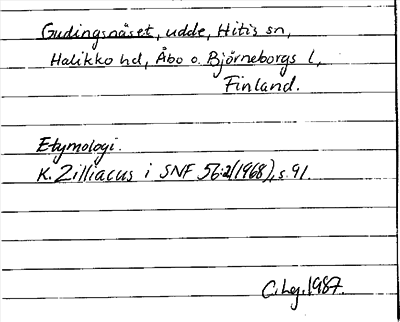 Gudingsnäset, udde, Hitis sn,
Halikko hd, Åbo o. Björneborgs l,
Finland.
Etymologi.
K. Zilliacus i SNF 56:2(1968), s. 91.
C. Lej. 1987.